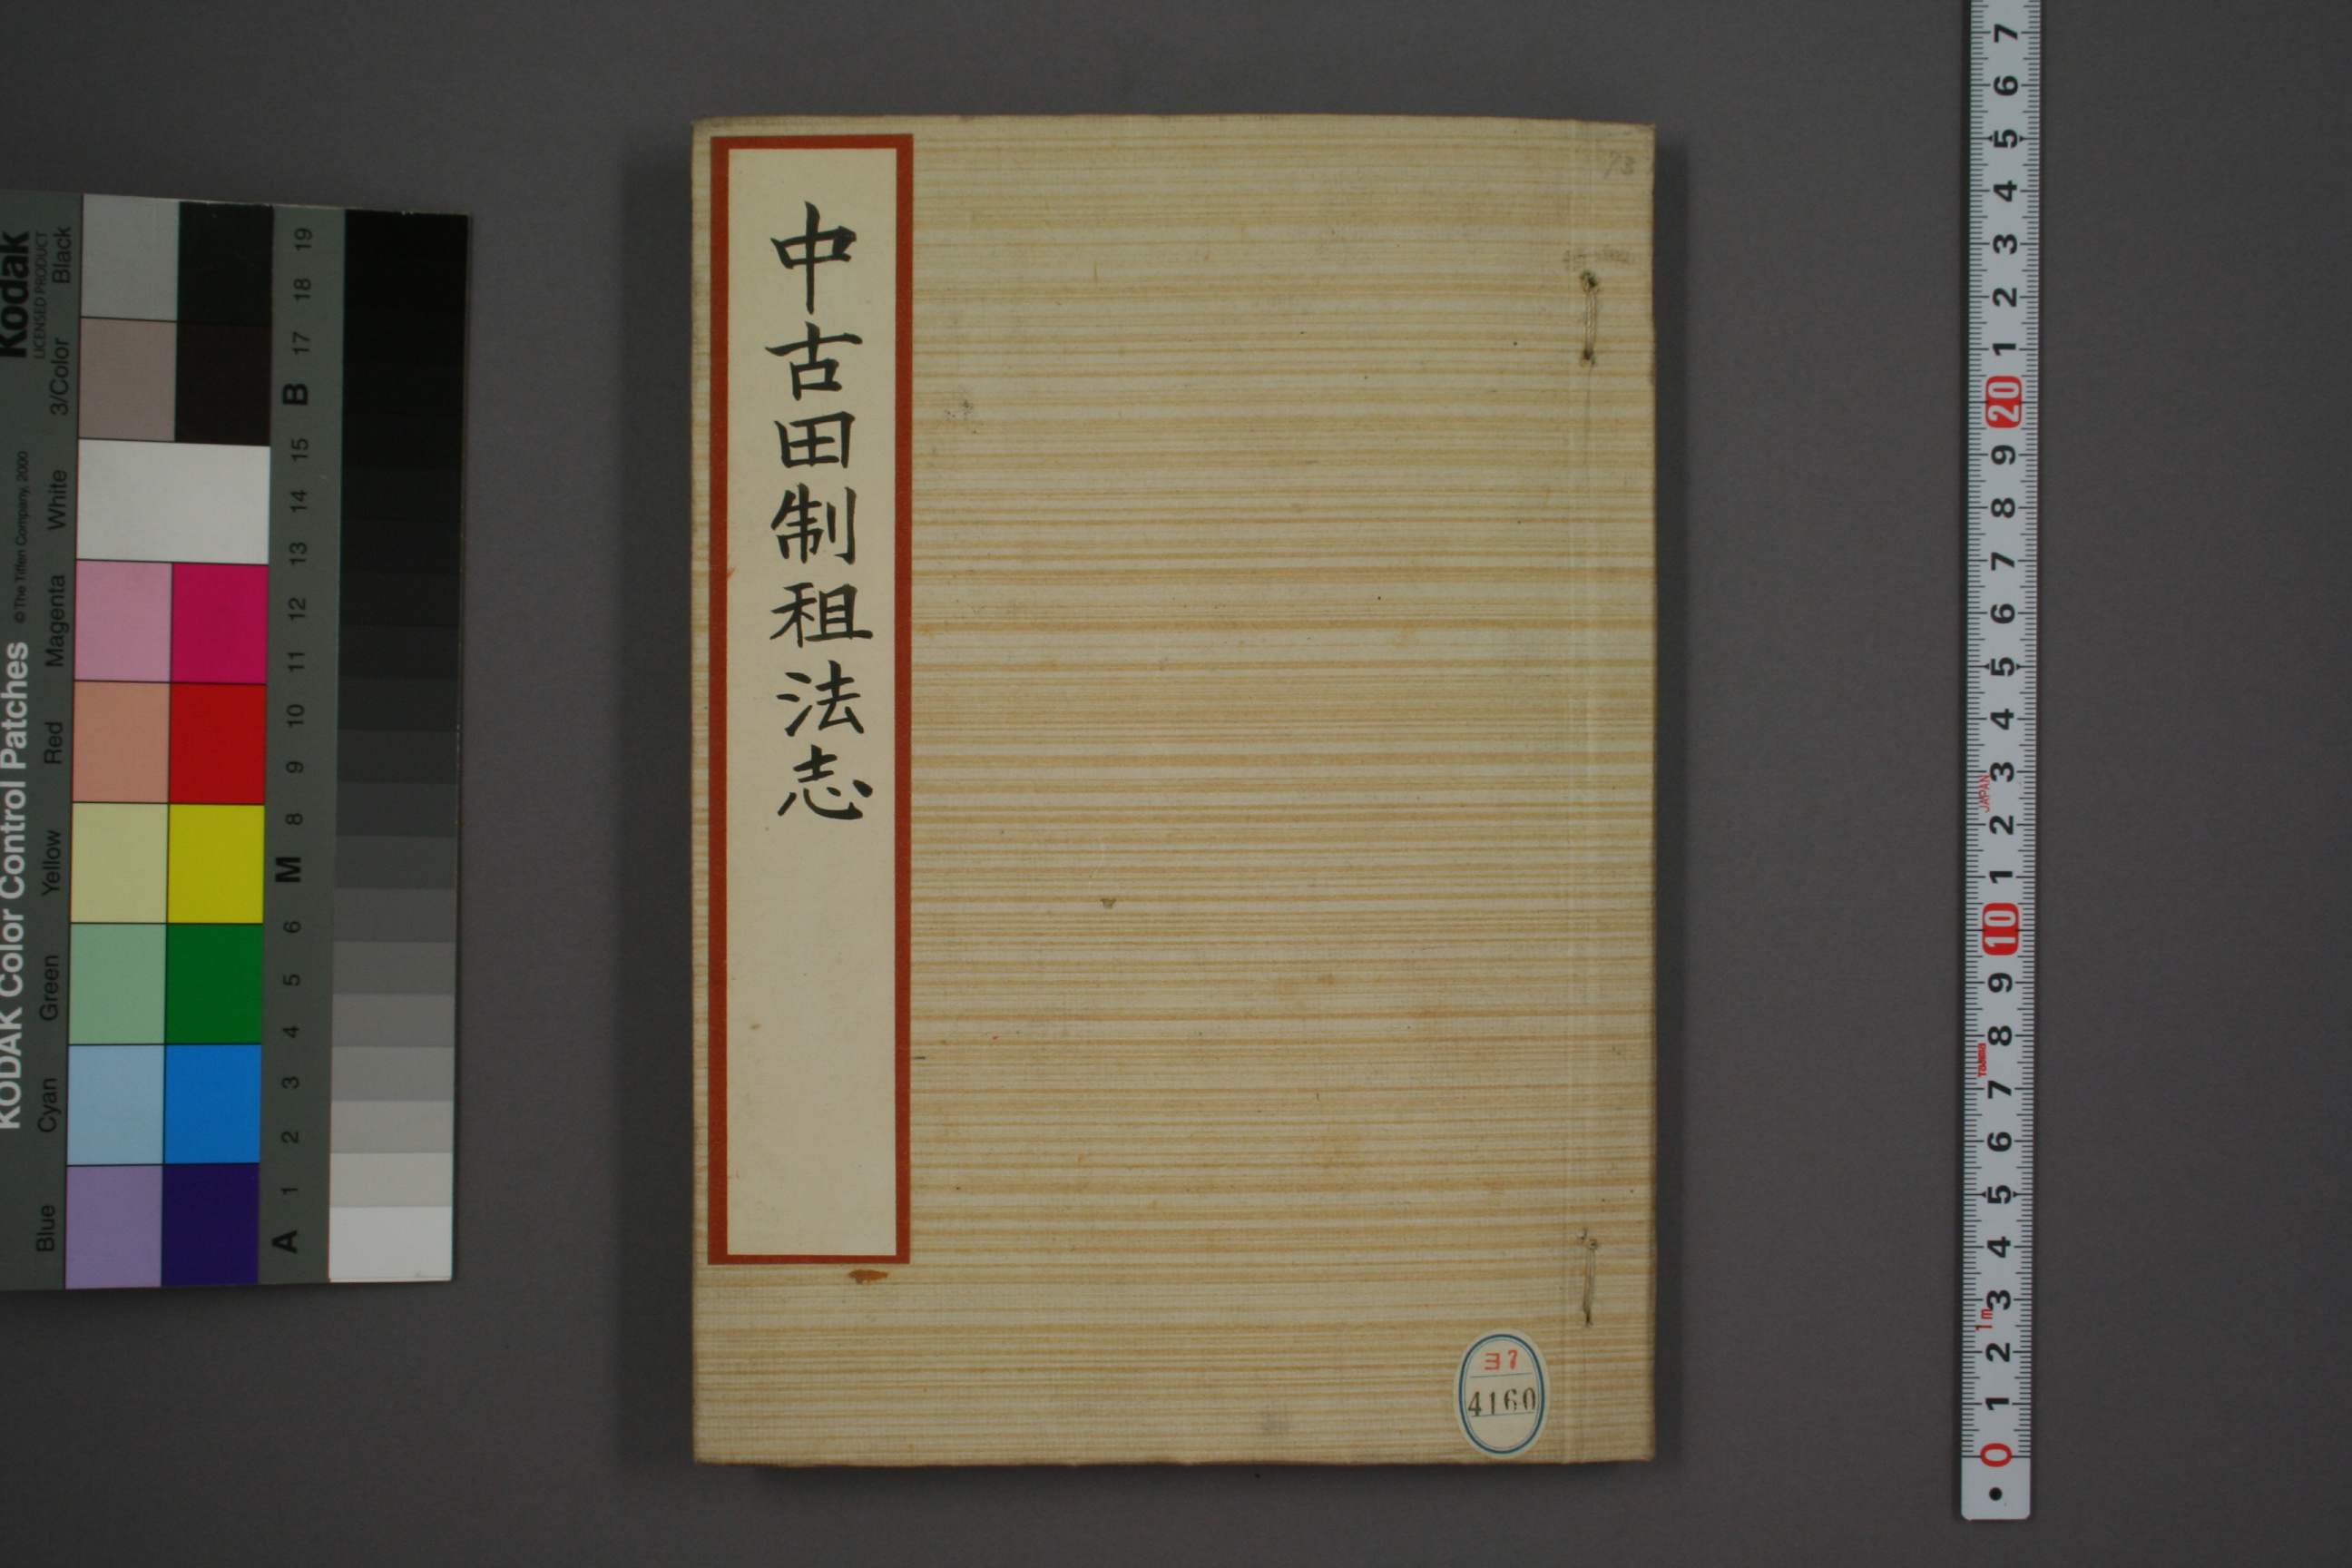 中古田制租法志
ヨ7
4160
Kodak
LICENSED PRODUCT
KODAK Color Control Patches
© The Tiffen Company, 2000
Blue
Cyan
Green
Yellow
Red
Magenta
White
3/Color
Black
A 1 2 3 4 5 6 M 8 9 10 11 12 13 14 15 B 17 18 19
0 1 2 3 4 5 6 7 8 9 10 1 2 3 4 5 6 7 8 9 20 1 2 3 4 5 6 7
1m
TAJIMA
JAPAN